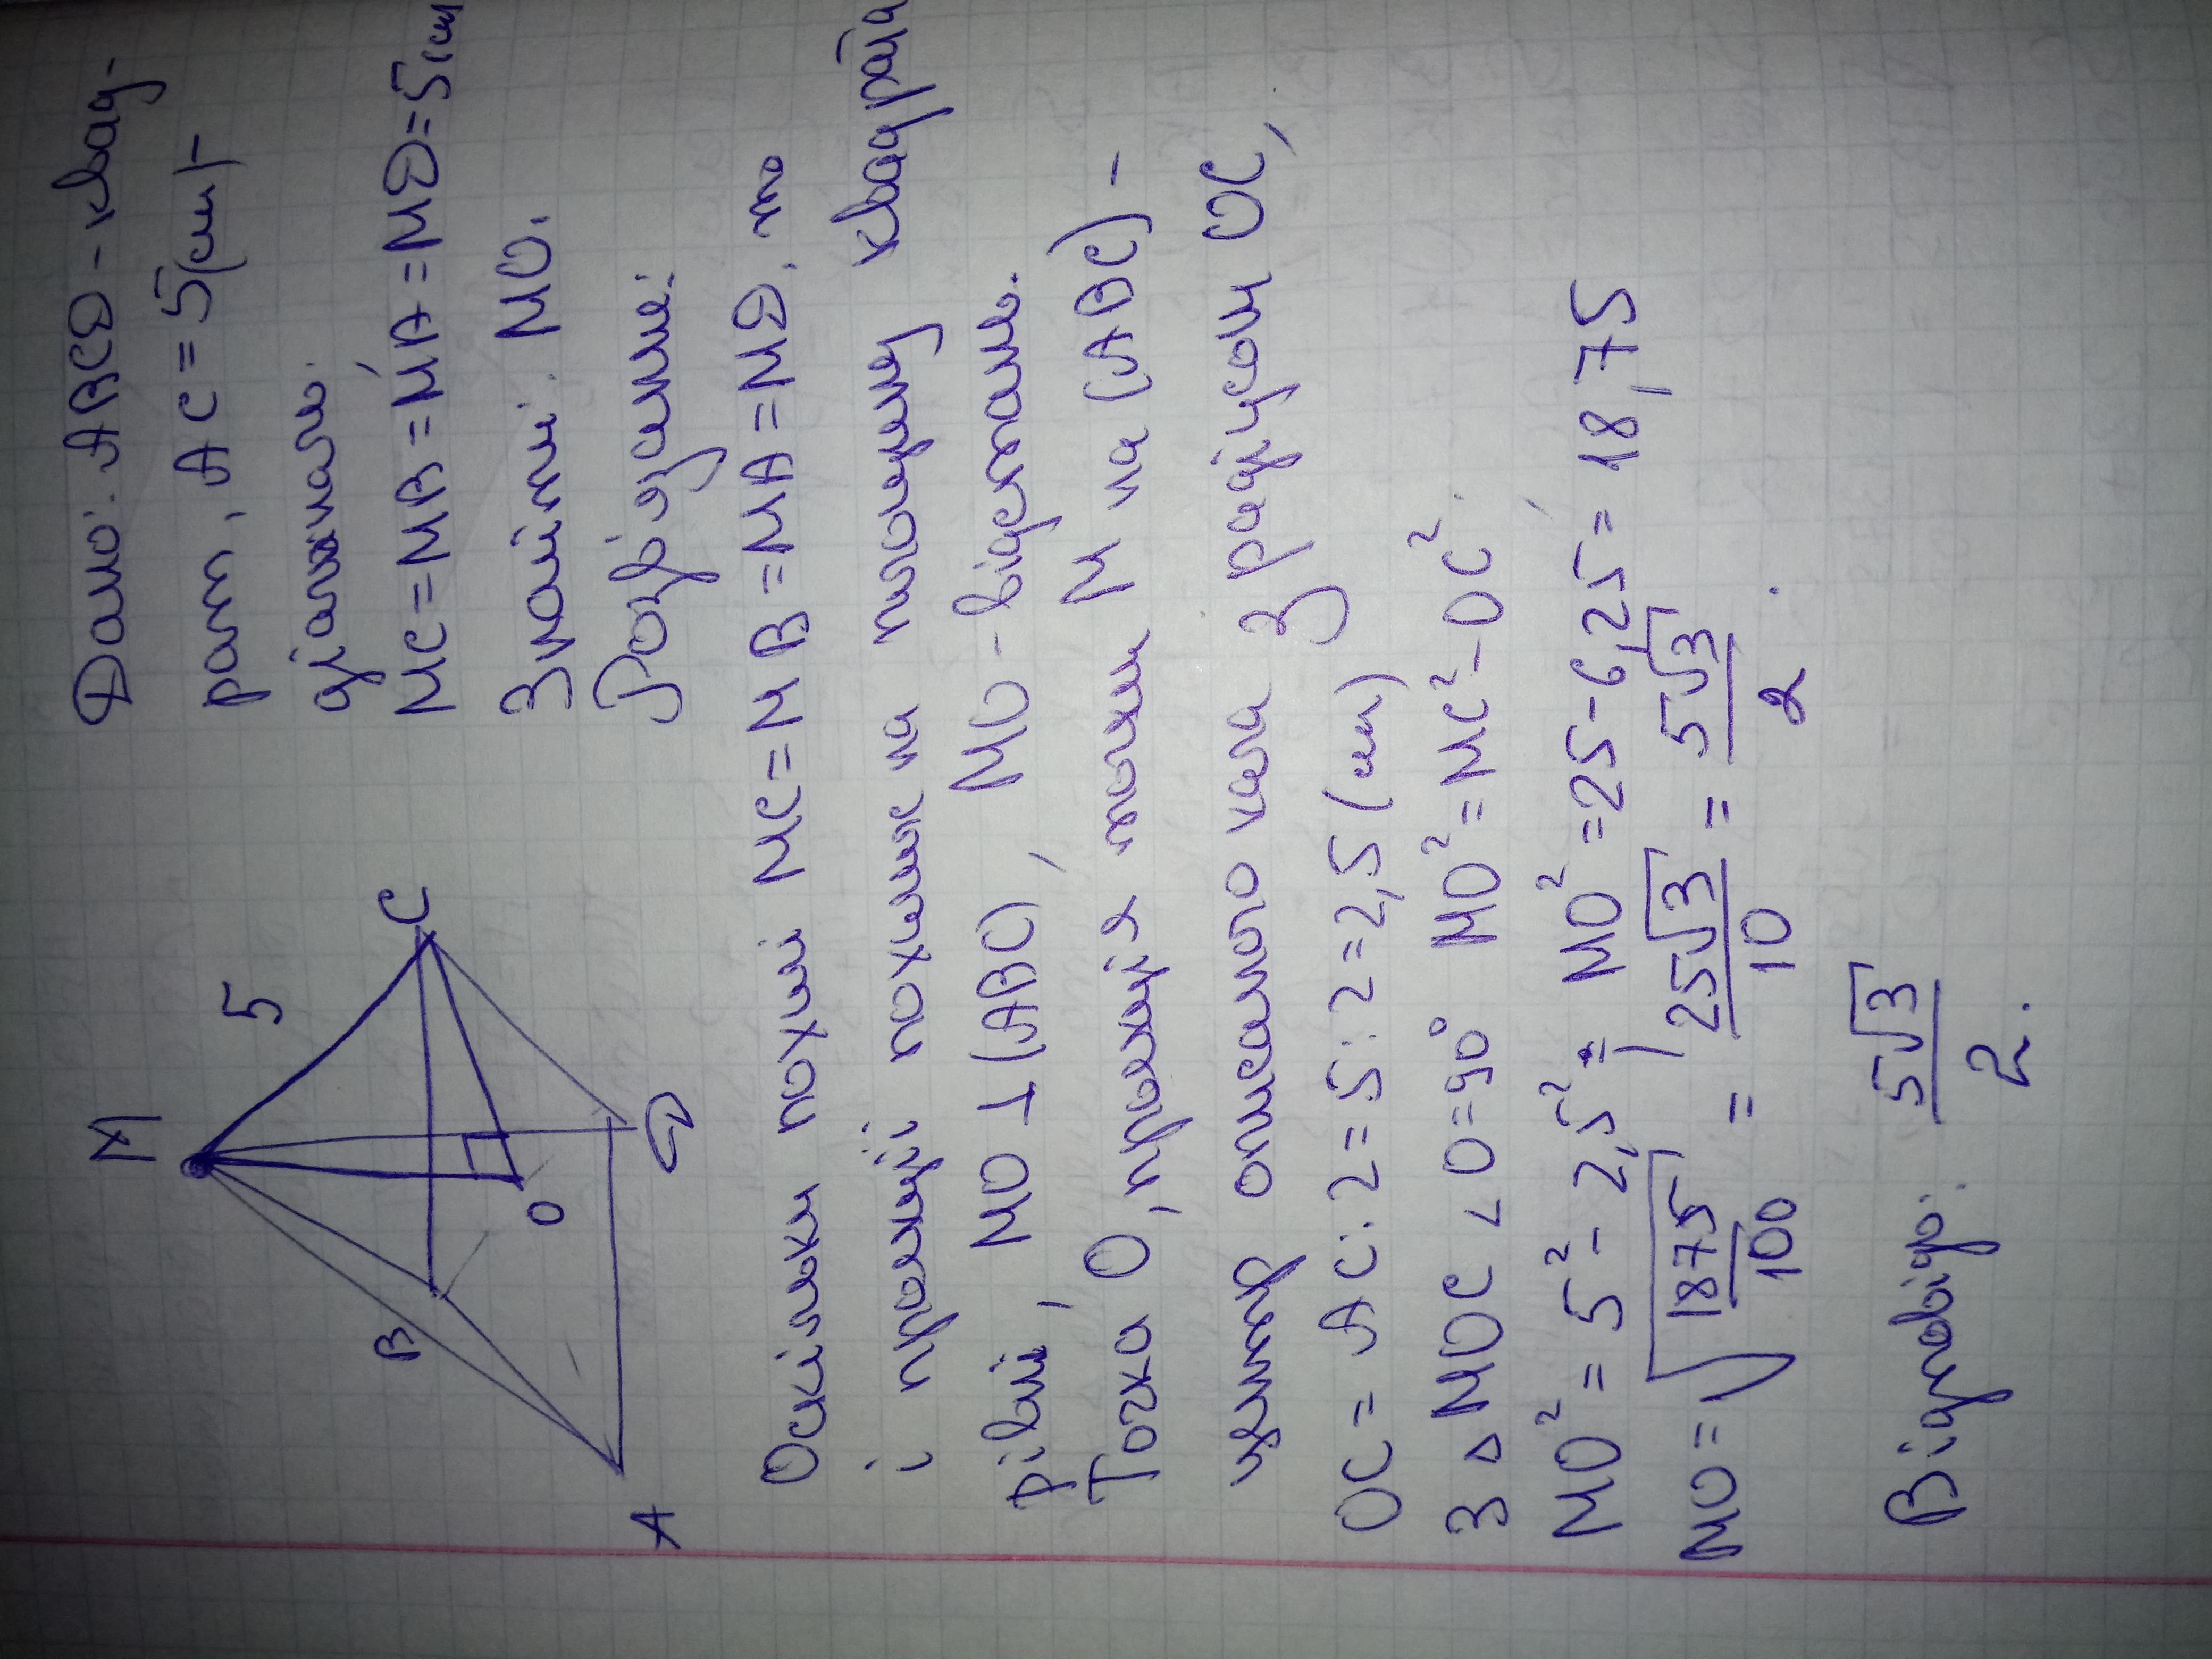 Дано: ABCD - квад-
рат, AC = 5 (см) -
діагональ.
MC = MB = MA = MD = 5 см
Знайти: MO.
Розв'язання:
M
5
C
B
O
D
A
Оскільки похилі MC = MB = MA = MD, то
і проекції похилих на площину квадрата
рівні, MO ⊥ (ABC), MO - відстань.
Точка O, проекція точки M на (ABC) -
центр описаного кола з радіусом OC,
OC = AC : 2 = 5 : 2 = 2,5 (см)
З △ MOC ∠O = 90° MO² = MC² - OC².
MO² = 5² - 2,5² = MO² = 25 - 6,25 = 18,75
MO = √(1875/100) = 25√3/10 = 5√3/2.
Відповідь: 5√3/2.